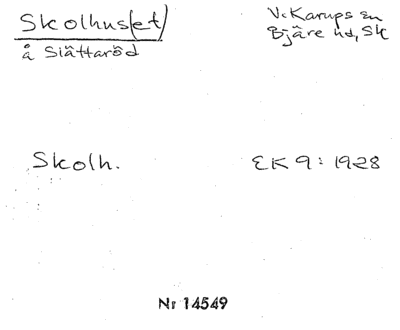 Skolhus(et)
å Slättaröd
V. Karups sn
Bjäre hd, Sk
Skolh.
EK 9: 1928
Nr 14549